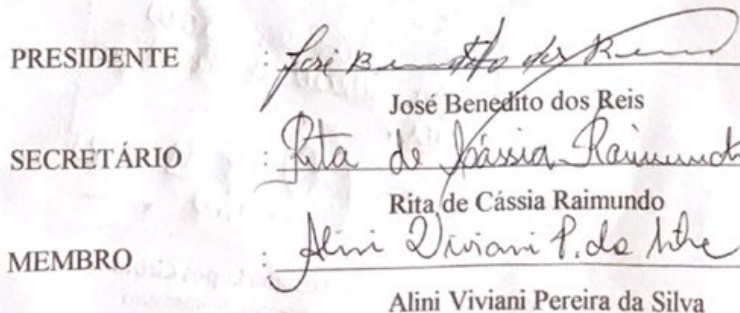 PRESIDENTE : José Benedito dos Reis
José Benedito dos Reis
SECRETÁRIO : Rita de Cássia Raimundo
Rita de Cássia Raimundo
MEMBRO : Alini Viviani P. da Silva
Alini Viviani Pereira da Silva